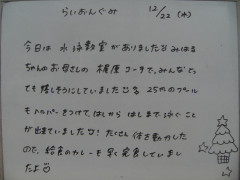 らいおんぐみ 12/22 (水)
今日は 水泳教室 がありました みはる
ちゃんのお母さんの 梶原 コーチで、みんなとっ
ても嬉しそうにしていました 25mのプール
もヘルパーをつけて、はしから はしまで 泳ぐ こと
が出来ていました! たくさん 体を動かした
ので、給食のカレーを 早く 完食していまし
たよ